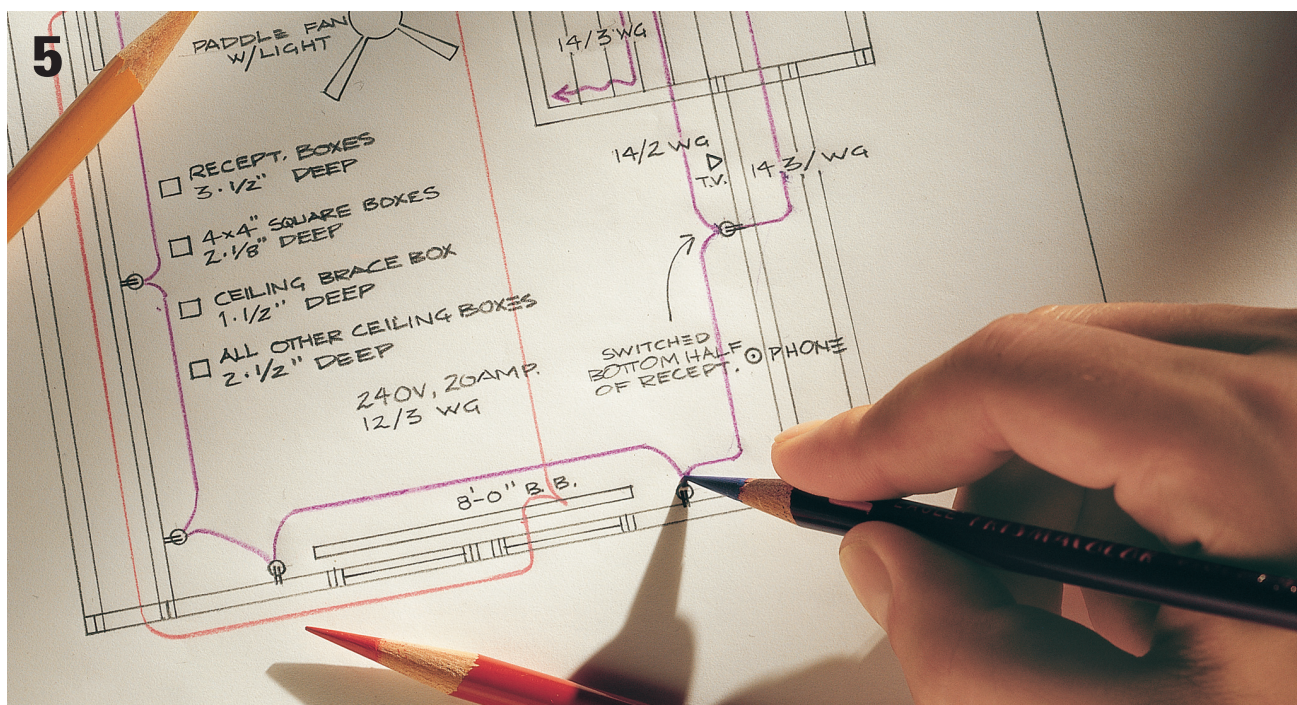 5
PADDLE FAN
W/LIGHT
14/3 WG
RECEPT. BOXES
3-1/2" DEEP
4x4" SQUARE BOXES
2-1/8" DEEP
CEILING BRACE BOX
1-1/2" DEEP
ALL OTHER CEILING BOXES
2-1/2" DEEP
240V, 20AMP.
12/3 WG
14/2 WG
T.V.
14 3/ WG
SWITCHED
BOTTOM HALF
OF RECEPT.
PHONE
8'-0" B.B.
PRISMACOLOR